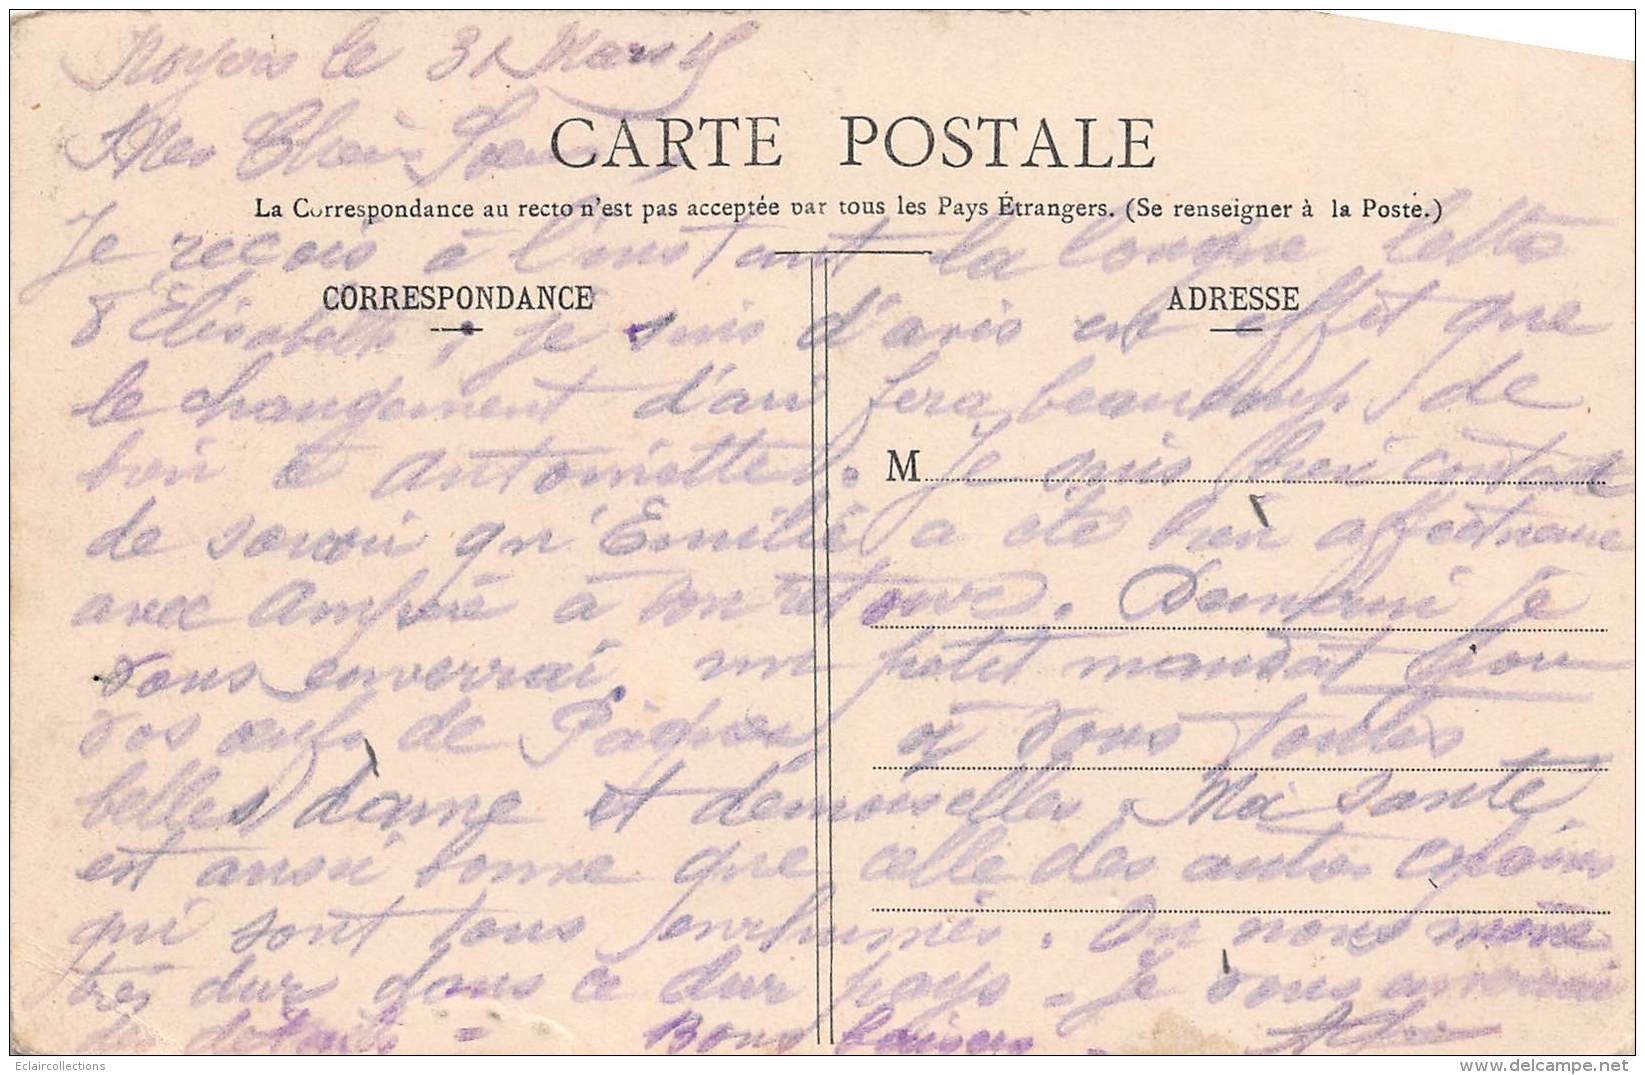 Noyers le 31 Mars 15
CARTE POSTALE
Mes Chères Soeurs
La Correspondance au recto n'est pas acceptée par tous les Pays Étrangers. (Se renseigner à la Poste.)
Je reçois à l'instant la longue lettre
CORRESPONDANCE
ADRESSE
d'Elisabeth, je suis d'avis en effet que
le changement d'air fera beaucoup de
bien à Antoinette. Je suis bien content
M
de savoir qu'Emilie a été bien affectueuse
avec à son retour. Demain je
vous enverrai un petit mandat pour
vos œufs de Pâques à vous toutes
belles dame et demoiselles. Ma santé
est aussi bonne que celle des autres copains
qui sont tous enrhumés. On nous mène
très dur dans ce dur pays. Je vous enverrai
des détails = Bons baisers.
Eclaircollections
delcampe.net